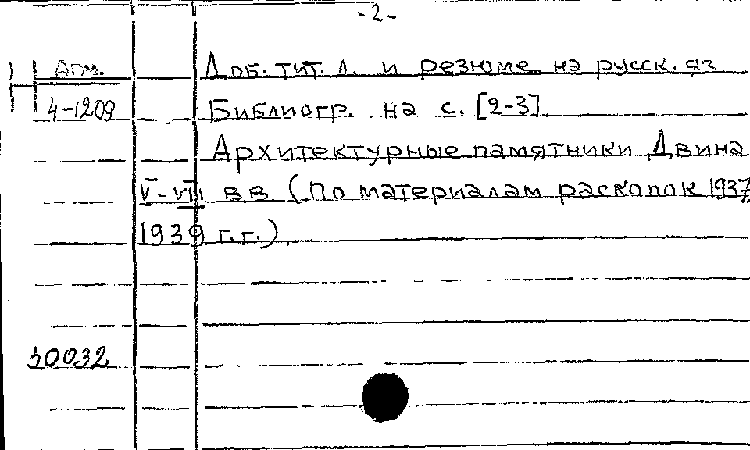 -2-
Арм. Доб. тит. л. и резюме на русск. яз
4-1209 Библиогр. на с. [2-3]
Архитектурные памятники Двина
V-VII вв (По материалам раскопок 1937
1939 г.г.)
10032